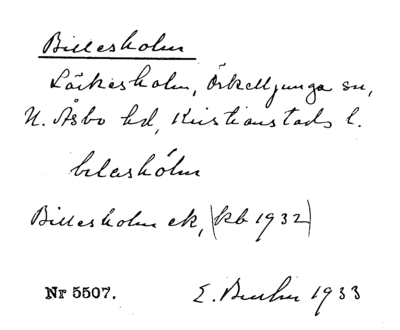 Billesholm
Lärkesholm, Örkelljunga sn,
N. Åsbo hd, Kristianstads l.
bɩlashólm
Billesholm ek, (kb 1932)
Nr 5507. E. 1933